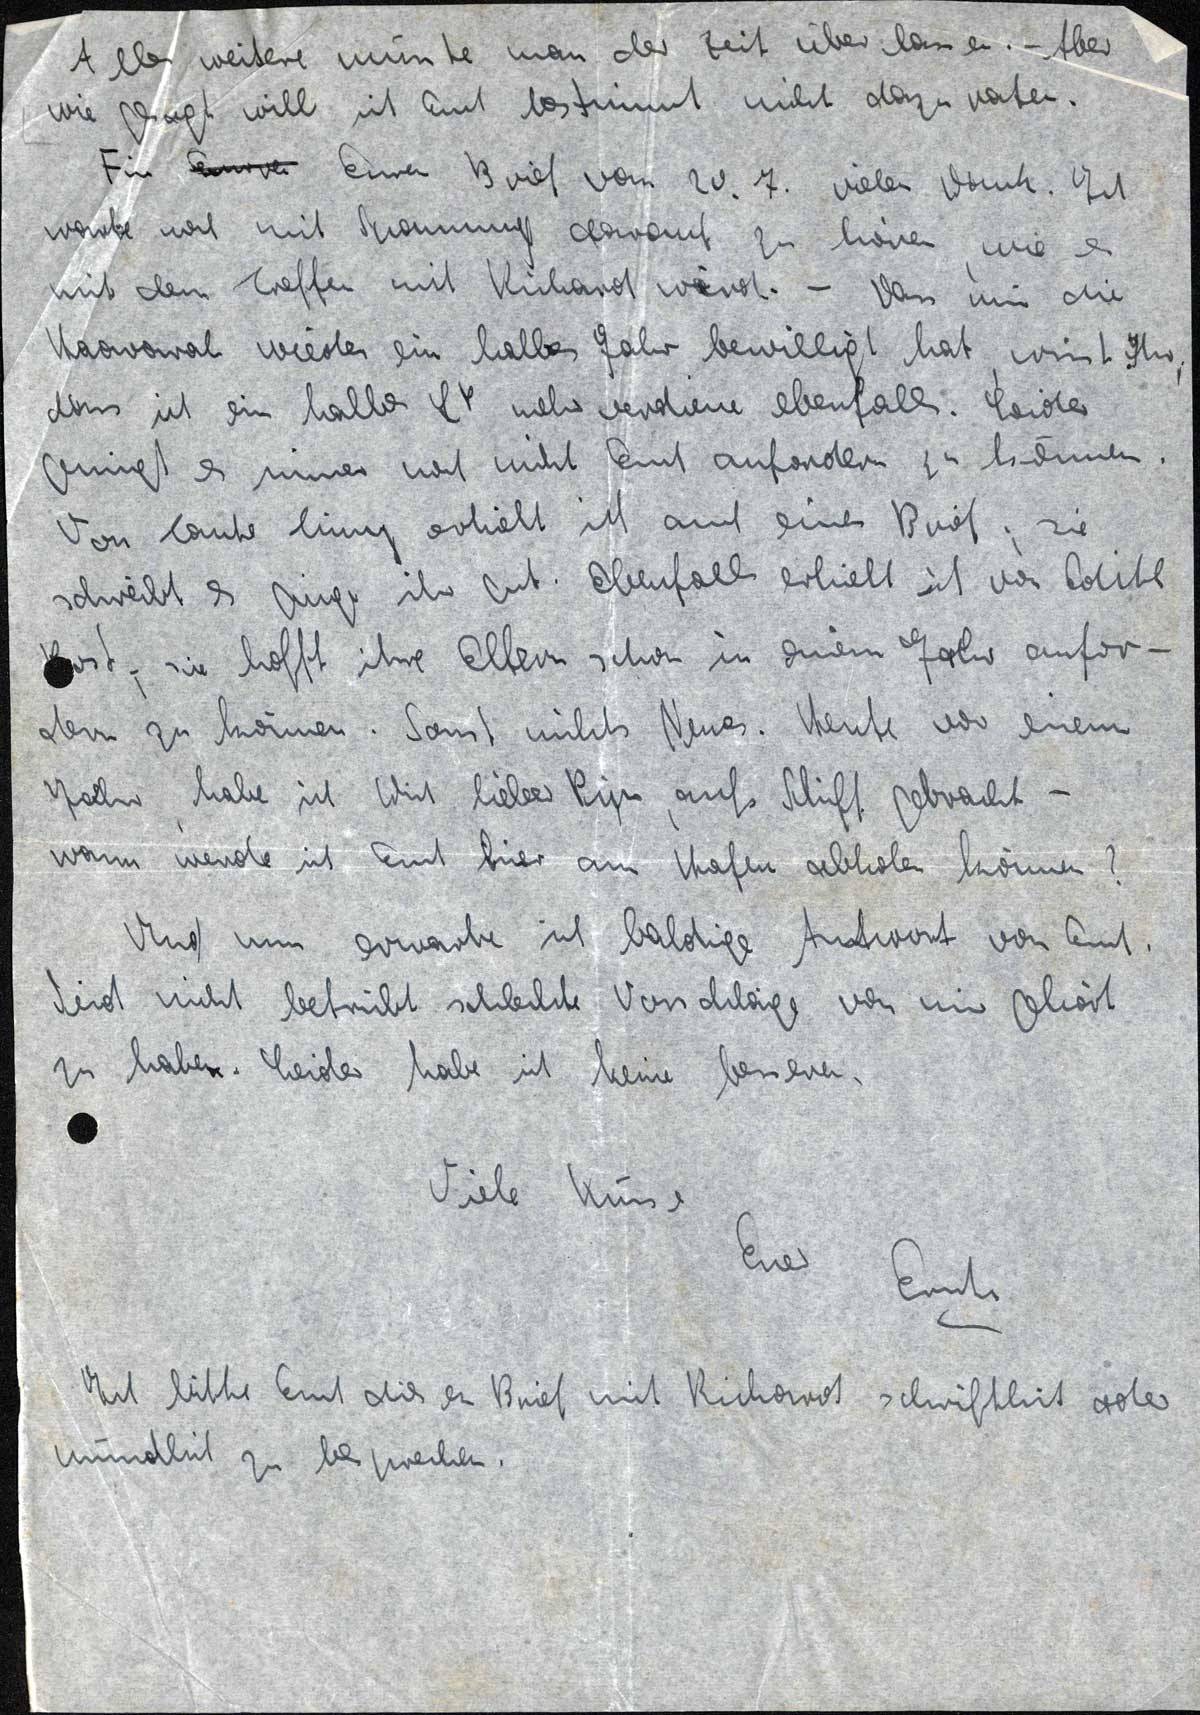 Alles weitere müsste man der Zeit überlassen. – Aber
wie gesagt will ich Euch bestimmt nicht dazu raten.
Für Euren Brief vom 20. 7. vielen Dank. Ich
warte noch mit Spannung darauf zu hören, wie es
mit dem Treffen mit Richard wird. – Dass mir die
Haavarah wieder ein halbes Jahr bewilligt hat, wisst Ihr,
dass ich ein halbes £P mehr verdiene ebenfalls. Leider
genügt es immer noch nicht Euch anfordern zu können.
Von Tante Cimy erhielt ich auch einen Brief, sie
schreibt es ginge ihr gut. Ebenfalls erhielt ich von Edith
sie hofft ihre Eltern schon in einem Jahr anfor-
dern zu können. Sonst nichts Neues. Heute vor einem
Jahr habe ich Dich lieber aufs Schiff gebracht –
wann werde ich Euch hier am Hafen abholen können?
Und nun erwarte ich baldige Antwort von Euch.
Seid nicht betrübt schlechte Vorschläge von mir gehört
zu haben. Leider habe ich keine besseren.
Viele Küsse
Euer Ernst
Ich bitte Euch diesen Brief mit Richard schriftlich oder
mündlich zu besprechen.